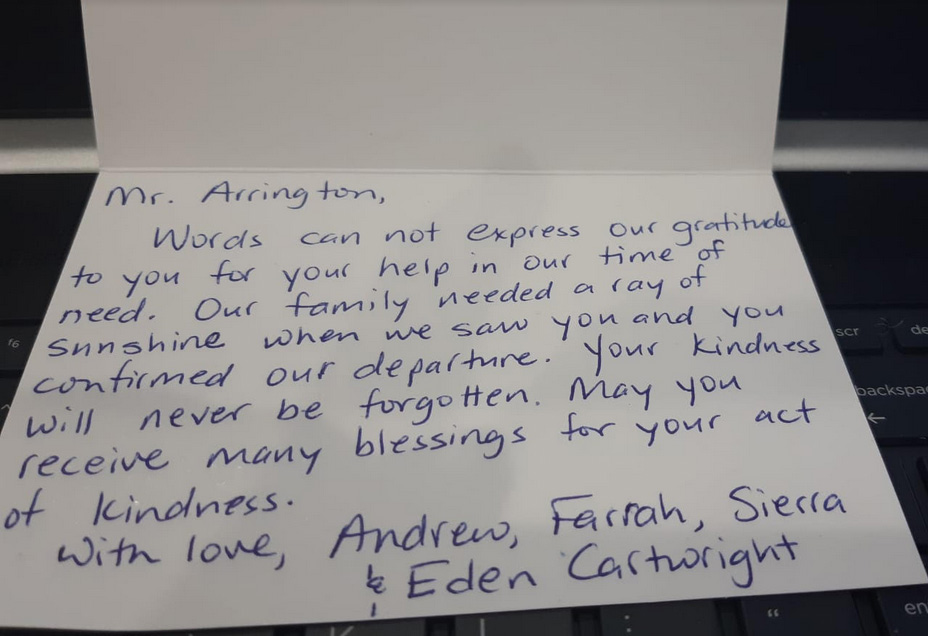 Mr. Arrington,
Words can not express our gratitude
to you for your help in our time of
need. Our family needed a ray of
sunshine when we saw you and you
confirmed our departure. Your kindness
will never be forgotten. May you
receive many blessings for your act
of kindness.
With love, Andrew, Farrah, Sierra
& Eden Cartwright
f6
scr
de
backspa
←
en